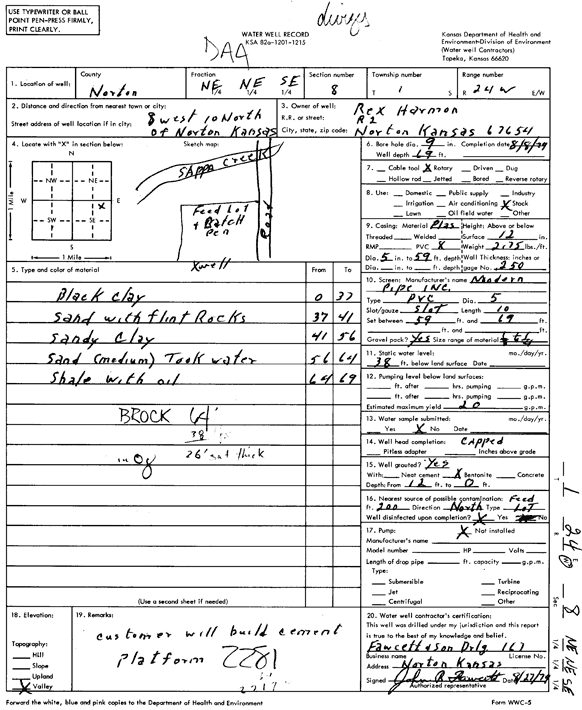 USE TYPEWRITER OR BALL
POINT PEN-PRESS FIRMLY,
PRINT CLEARLY.
WATER WELL RECORD
KSA 82a-1201-1215
Kansas Department of Health and
Environment-Division of Environment
(Water well Contractors)
Topeka, Kansas 66620
1. Location of well:
County
Norton
Fraction
NE 1/4 NE 1/4 SE 1/4
Section number
8
Township number
T 1 S
Range number
R 24 W E/W
2. Distance and direction from nearest town or city:
8 west 10 North
Street address of well location if in city:
of Norton Kansas
3. Owner of well:
Rex Harmon
R.R. or street:
R 2
City, state, zip code:
Norton Kansas 67654
4. Locate with "X" in section below:
N
NW NE
W E
X
SW SE
S
1 Mile
1 Mile
Sketch map:
Sappa Creek
Feed Lot
+ Batch
Pen
Road
X well
6. Bore hole dia. 9 in. Completion date 8/8/79
Well depth 69 ft.
7. Cable tool X Rotary Driven Dug
Hollow rod Jetted Bored Reverse rotary
8. Use: Domestic Public supply Industry
Irrigation Air conditioning X Stock
Lawn Oil field water Other
9. Casing: Material Plas Height: Above or below
Threaded Welded Surface 12 in.
RMP PVC X Weight 2.75 lbs./ft.
Dia. 5 in. to 59 ft. depth Wall Thickness: inches or
Dia. in. to ft. depth gage No. 250
5. Type and color of material From To
Black clay 0 37
Sand with flint Rocks 37 41
Sandy Clay 41 56
Sand (medium) Took water 56 64
Shale with oil 64 69
BROCK 64'
38
26' sat thick
in Og
10. Screen: Manufacturer's name Modern
Pipe INC.
Type PVC Dia. 5
Slot/gauze SLOT Length 10
Set between 59 ft. and 69 ft.
ft. and ft.
Gravel pack? Yes Size range of material
11. Static water level: mo./day/yr.
38 ft. below land surface Date
12. Pumping level below land surfaces:
ft. after hrs. pumping g.p.m.
ft. after hrs. pumping g.p.m.
Estimated maximum yield 20 g.p.m.
13. Water sample submitted: mo./day/yr.
Yes X No Date
14. Well head completion: capped
Pitless adapter Inches above grade
15. Well grouted? Yes
With: Neat cement X Bentonite Concrete
Depth: From 12 ft. to 0 ft.
16. Nearest source of possible contamination: Feed
ft. 200 Direction North Type LOT
Well disinfected upon completion? X Yes No
17. Pump: X Not installed
Manufacturer's name
Model number HP Volts
Length of drop pipe ft. capacity g.p.m.
Type:
Submersible Turbine
Jet Reciprocating
Centrifugal Other
(Use a second sheet if needed)
18. Elevation:
Topography:
Hill
Slope
Upland
X Valley
19. Remarks:
customer will build cement
Platform
2281
20. Water well contractor's certification:
This well was drilled under my jurisdiction and this report
is true to the best of my knowledge and belief.
Fawcett & Son Drlg 167
Business name License No.
Address Norton Kansas
Signed John R Fawcett Date 8/27/79
Authorized representative
Forward the white, blue and pink copies to the Department of Health and Environment
Form WWC-5